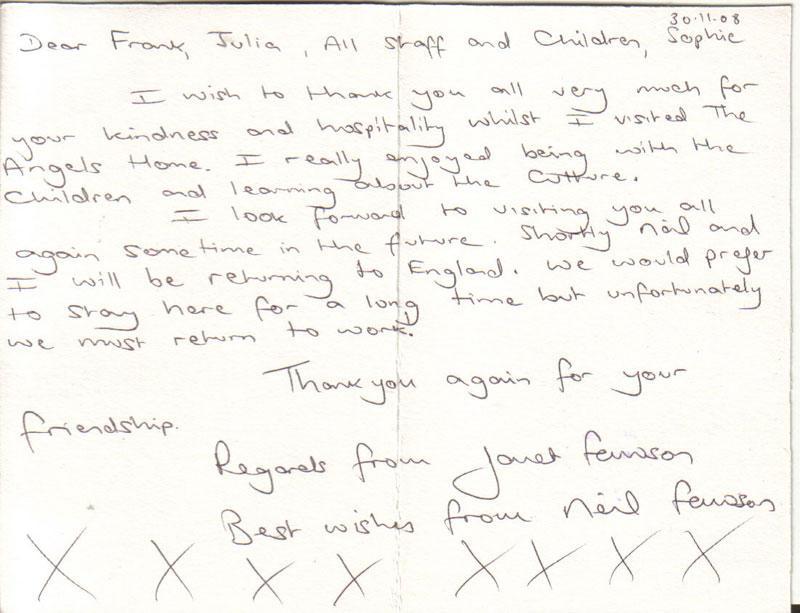 30.11.08
Dear Frank, Julia, All staff and Children, Sophie
I wish to thank you all very much for
your kindness and hospitality whilst I visited The
Angels Home. I really enjoyed being with the
Children and learning about the Culture.
I look forward to visiting you all
again sometime in the future. Shortly Neil and
I will be returning to England. We would prefer
to stay here for a long time but unfortunately
we must return to work.
Thank you again for your
friendship.
Regards from Janet
Best wishes from Neil
X X X X X X X X